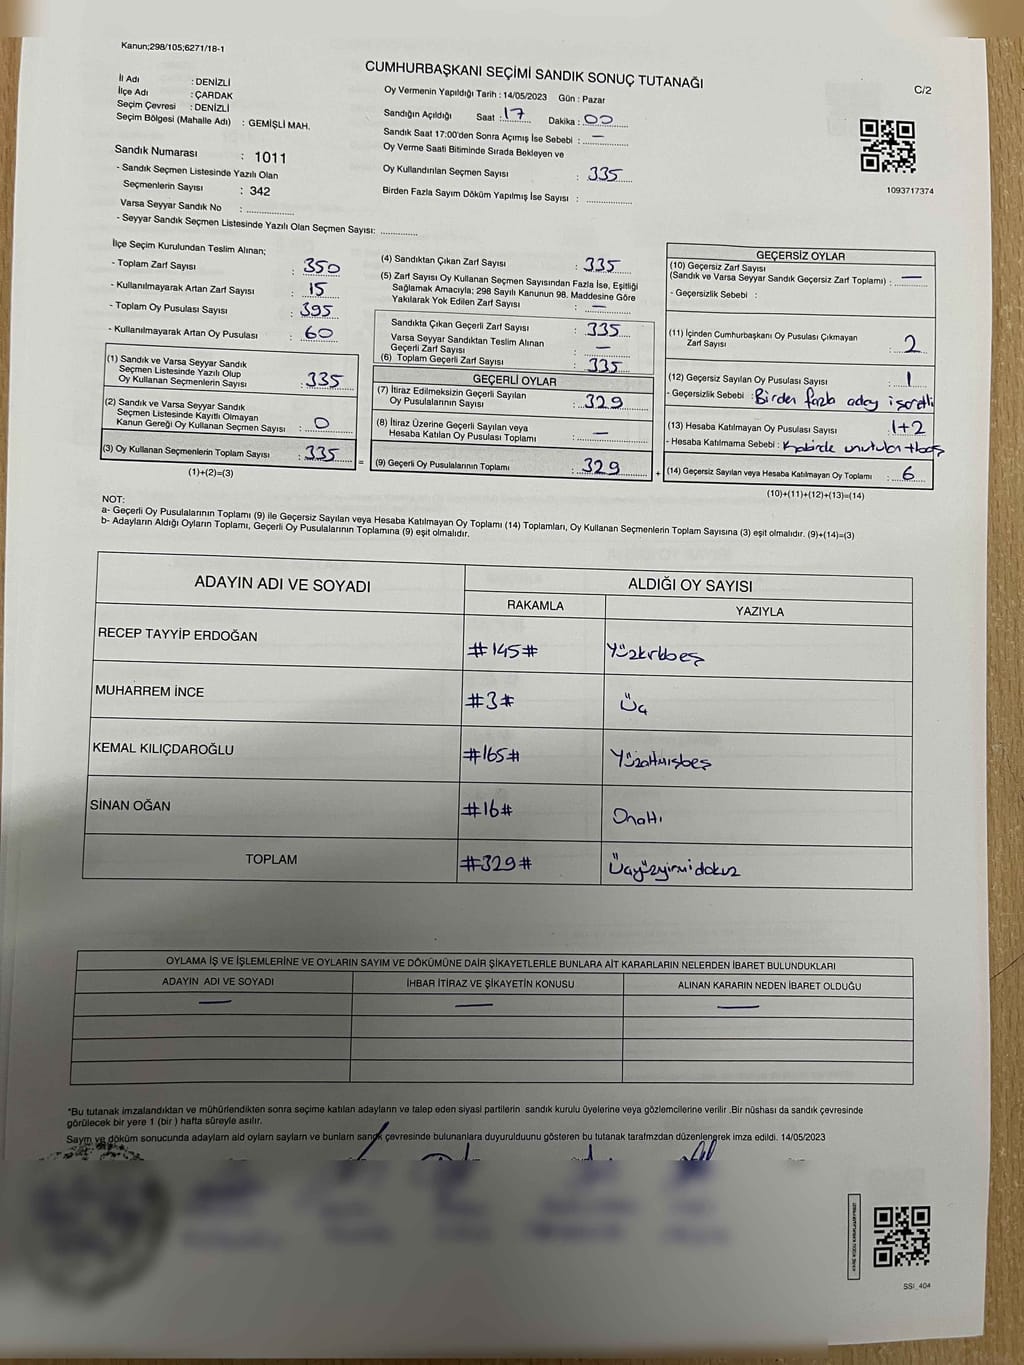 Kanun;298/105;6271/18-1
CUMHURBAŞKANI SEÇİMİ SANDIK SONUÇ TUTANAĞI
C/2
İl Adı : DENİZLİ
İlçe Adı : ÇARDAK
Seçim Çevresi : DENİZLİ
Seçim Bölgesi (Mahalle Adı) : GEMİŞLİ MAH.
Sandık Numarası : 1011
- Sandık Seçmen Listesinde Yazılı Olan
Seçmenlerin Sayısı : 342
Varsa Seyyar Sandık No :
- Seyyar Sandık Seçmen Listesinde Yazılı Olan Seçmen Sayısı:
Oy Vermenin Yapıldığı Tarih : 14/05/2023 Gün : Pazar
Sandığın Açıldığı Saat : 17 Dakika : 00
Sandık Saat 17:00'den Sonra Açımış İse Sebebi : —
Oy Verme Saati Bitiminde Sırada Bekleyen ve
Oy Kullandırılan Seçmen Sayısı : 335
Birden Fazla Sayım Döküm Yapılmış İse Sayısı :
1093717374
İlçe Seçim Kurulundan Teslim Alınan;
- Toplam Zarf Sayısı : 350
- Kullanılmayarak Artan Zarf Sayısı : 15
- Toplam Oy Pusulası Sayısı : 395
- Kullanılmayarak Artan Oy Pusulası : 60
(1) Sandık ve Varsa Seyyar Sandık
Seçmen Listesinde Yazılı Olup
Oy Kullanan Seçmenlerin Sayısı : 335
(2) Sandık ve Varsa Seyyar Sandık
Seçmen Listesinde Kayıtlı Olmayan
Kanun Gereği Oy Kullanan Seçmen Sayısı : 0
(3) Oy Kullanan Seçmenlerin Toplam Sayısı : 335
(1)+(2)=(3)
(4) Sandıktan Çıkan Zarf Sayısı : 335
(5) Zarf Sayısı Oy Kullanan Seçmen Sayısından Fazla İse, Eşitliği
Sağlamak Amacıyla; 298 Sayılı Kanunun 98. Maddesine Göre
Yakılarak Yok Edilen Zarf Sayısı : —
Sandıkta Çıkan Geçerli Zarf Sayısı : 335
Varsa Seyyar Sandıktan Teslim Alınan
Geçerli Zarf Sayısı : —
(6) Toplam Geçerli Zarf Sayısı : 335
GEÇERLİ OYLAR
(7) İtiraz Edilmeksizin Geçerli Sayılan
Oy Pusulalarının Sayısı : 329
(8) İtiraz Üzerine Geçerli Sayılan veya
Hesaba Katılan Oy Pusulası Toplamı : —
(9) Geçerli Oy Pusulalarının Toplamı : 329
GEÇERSİZ OYLAR
(10) Geçersiz Zarf Sayısı
(Sandık ve Varsa Seyyar Sandık Geçersiz Zarf Toplamı) : —
- Geçersizlik Sebebi :
(11) İçinden Cumhurbaşkanı Oy Pusulası Çıkmayan
Zarf Sayısı : 2
(12) Geçersiz Sayılan Oy Pusulası Sayısı : 1
- Geçersizlik Sebebi : Birden fazla aday işaretli
(13) Hesaba Katılmayan Oy Pusulası Sayısı : 1+2
- Hesaba Katılmama Sebebi : Kabirde unutulan
(14) Geçersiz Sayılan veya Hesaba Katılmayan Oy Toplamı : 6
(10)+(11)+(12)+(13)=(14)
NOT:
a- Geçerli Oy Pusulalarının Toplamı (9) ile Geçersiz Sayılan veya Hesaba Katılmayan Oy Toplamı (14) Toplamları, Oy Kullanan Seçmenlerin Toplam Sayısına (3) eşit olmalıdır. (9)+(14)=(3)
b- Adayların Aldığı Oyların Toplamı, Geçerli Oy Pusulalarının Toplamına (9) eşit olmalıdır.
ADAYIN ADI VE SOYADI ALDIĞI OY SAYISI
RAKAMLA YAZIYLA
RECEP TAYYİP ERDOĞAN #145# Yüzkırkbeş
MUHARREM İNCE #3# Üç
KEMAL KILIÇDAROĞLU #165# Yüzaltmışbeş
SİNAN OĞAN #16# Onaltı
TOPLAM #329# Üçyüzyirmidokuz
OYLAMA İŞ VE İŞLEMLERİNE VE OYLARIN SAYIM VE DÖKÜMÜNE DAİR ŞİKAYETLERLE BUNLARA AİT KARARLARIN NELERDEN İBARET BULUNDUKLARI
ADAYIN ADI VE SOYADI İHBAR İTİRAZ VE ŞİKAYETİN KONUSU ALINAN KARARIN NEDEN İBARET OLDUĞU
— — —
*Bu tutanak imzalandıktan ve mühürlendikten sonra seçime katılan adayların ve talep eden siyasi partilerin sandık kurulu üyelerine veya gözlemcilerine verilir .Bir nüshası da sandık çevresinde
görülecek bir yere 1 (bir ) hafta süreyle asılır.
Sayım ve döküm sonucunda adayların ald oyların sayların ve bunların sandık çevresinde bulunanlara duyurulduunu gösteren bu tutanak tarafmzdan düzenlenerek imza edildi. 14/05/2023
SSI_404